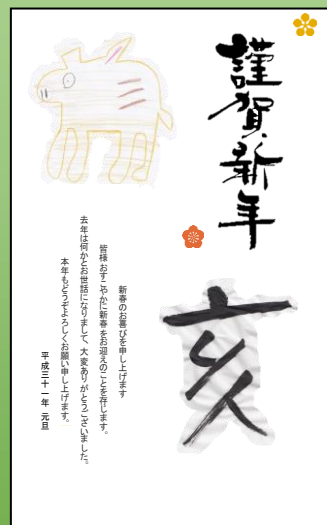 謹賀新年
亥
新春のお喜びを申し上げます
皆様おすこやかに新春をお迎えのことを存じます。
去年は何かとお世話になりまして、大変ありがとうございました。
本年もどうぞよろしくお願い申し上げます。
平成三十一年 元旦